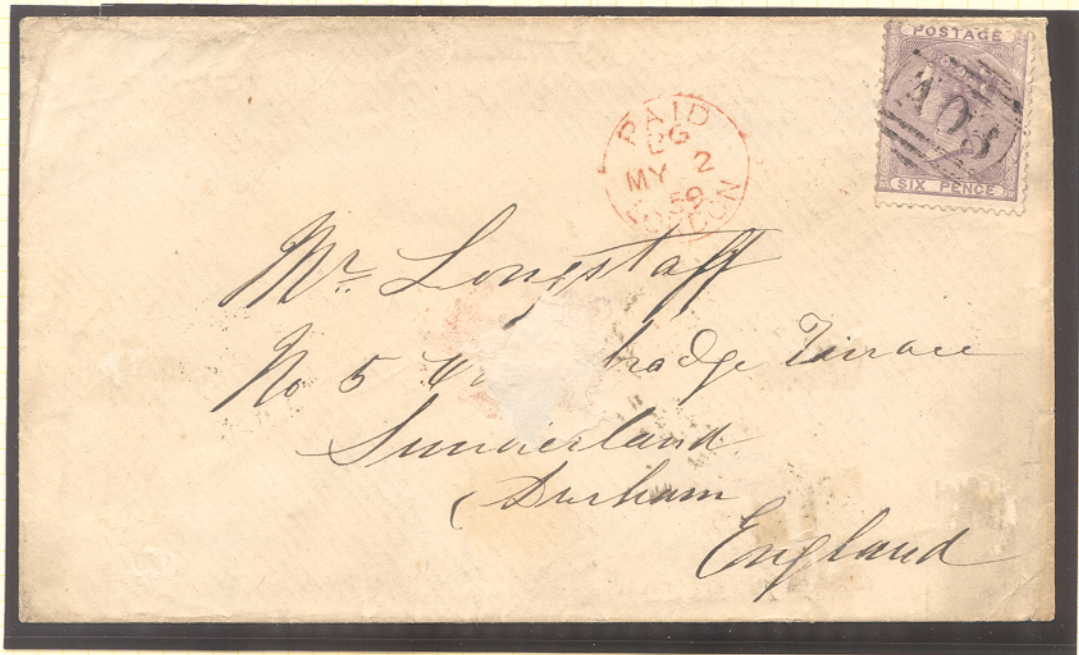 POSTAGE
A03
SIX PENCE
PAID
MY 2
59
LONDON
Mr. Longstaff
No 5 bradge Terrace
Sunderland
Durham
England